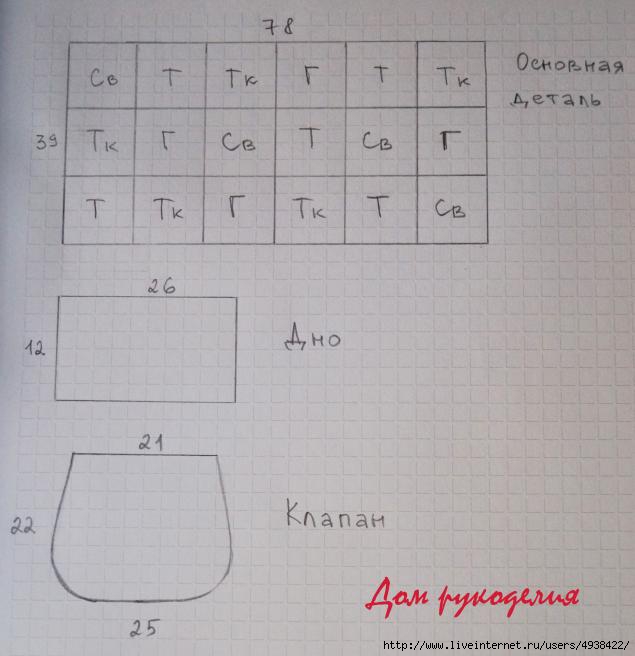 78
Основная
деталь
39
Св Т Тк Г Т Тк
Тк Г Св Т Св Г
Т Тк Г Тк Т Св
26
12
Дно
21
22
Клапан
25
Дом рукоделия
http://www.liveinternet.ru/users/4938422/